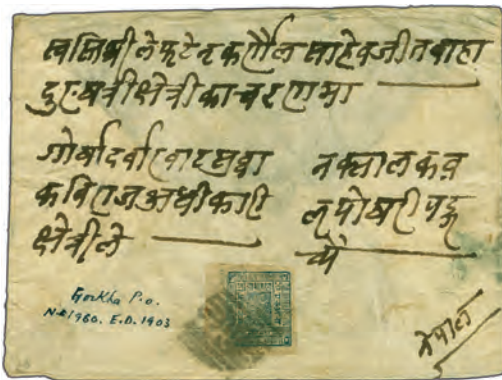 स्वस्तिश्री लेफ्टेन कर्णैल साहेबजीत बाहा
दुर षत्री क्षेत्रीका चरणमा
गोर्षा दर्वार
कविराज अधीकारी
क्षेत्रीले
नक्साल कव
ल पोषरी
Gorkha P.O.
N.E 1960. E.D. 1903
नेपाल